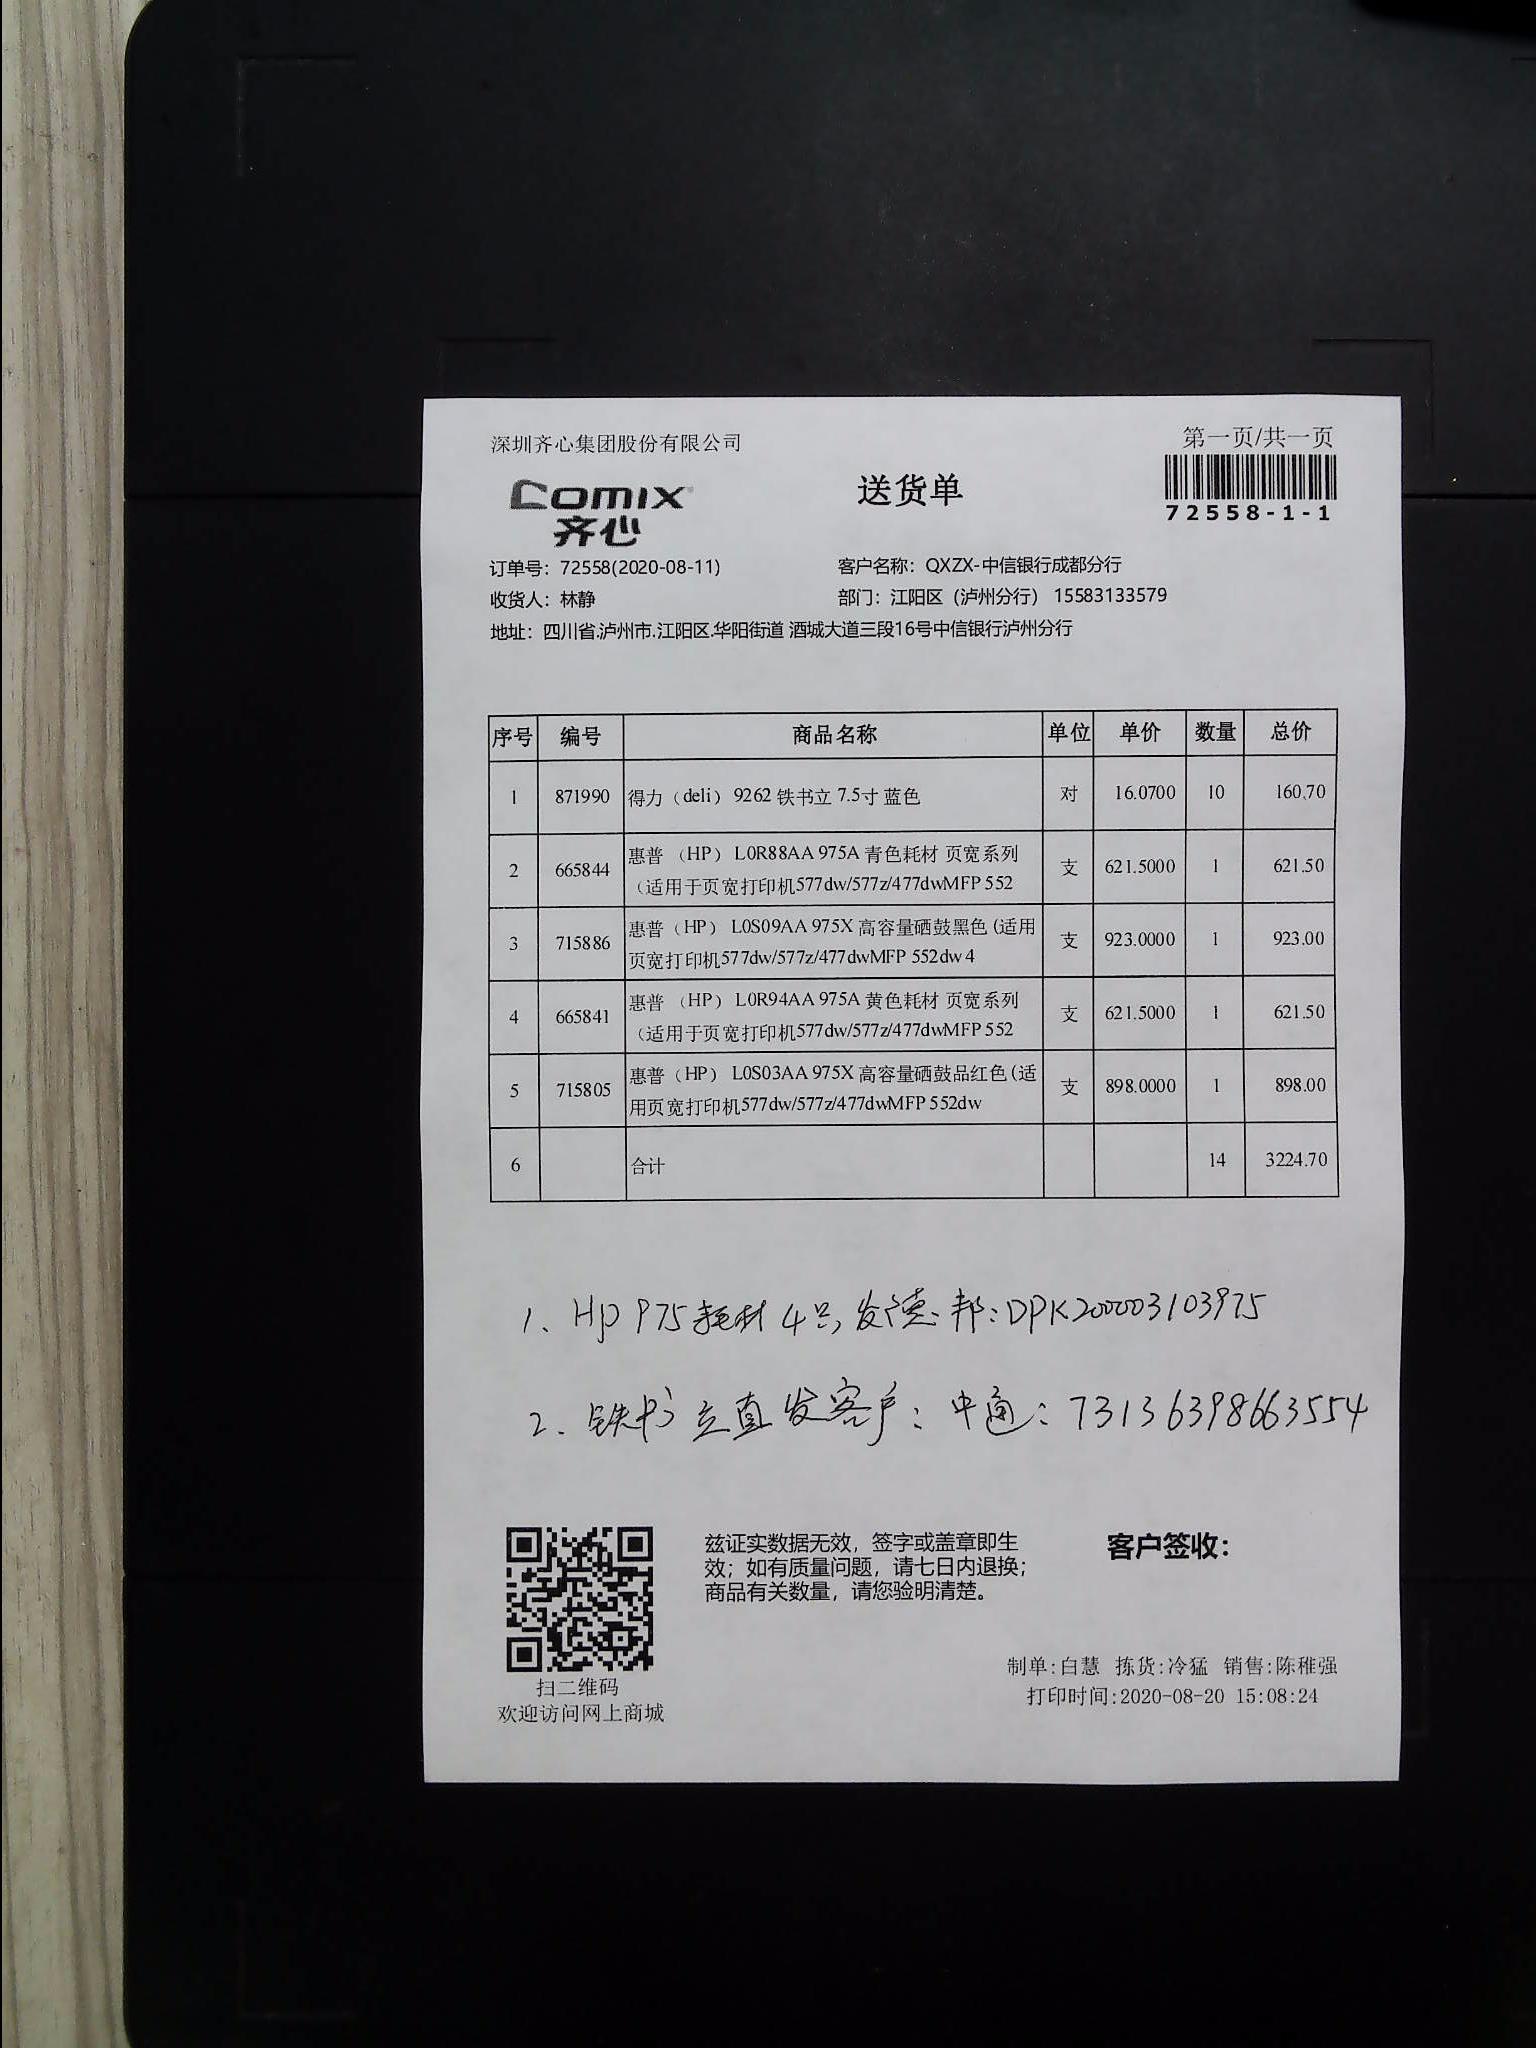 深圳齐心集团股份有限公司
第一页/共一页
COMIX
齐心
送货单
72558-1-1
订单号：72558(2020-08-11)
客户名称：QXZX-中信银行成都分行
收货人：林静
部门：江阳区（泸州分行） 15583133579
地址：四川省.泸州市.江阳区.华阳街道 酒城大道三段16号中信银行泸州分行
序号 编号 商品名称 单位 单价 数量 总价
1 871990 得力（deli） 9262 铁书立 7.5寸 蓝色 对 16.0700 10 160.70
2 665844 惠普 （HP） L0R88AA 975A 青色耗材 页宽系列 支 621.5000 1 621.50
（适用于页宽打印机577dw/577z/477dwMFP 552
3 715886 惠普（HP） L0S09AA 975X 高容量硒鼓黑色 (适用 支 923.0000 1 923.00
页宽打印机577dw/577z/477dwMFP 552dw 4
4 665841 惠普 （HP） L0R94AA 975A 黄色耗材 页宽系列 支 621.5000 1 621.50
（适用于页宽打印机577dw/577z/477dwMFP 552
5 715805 惠普（HP） L0S03AA 975X 高容量硒鼓品红色 (适 支 898.0000 1 898.00
用页宽打印机577dw/577z/477dwMFP 552dw
6 合计 14 3224.70
1、Hp 975耗材4只，发德邦：DPK200003103975
2、铁书立直发客户：中通：73136398663554
兹证实数据无效，签字或盖章即生
效；如有质量问题，请七日内退换；
商品有关数量，请您验明清楚。
客户签收：
扫二维码
欢迎访问网上商城
制单:白慧 拣货:冷猛 销售:陈稚强
打印时间:2020-08-20 15:08:24